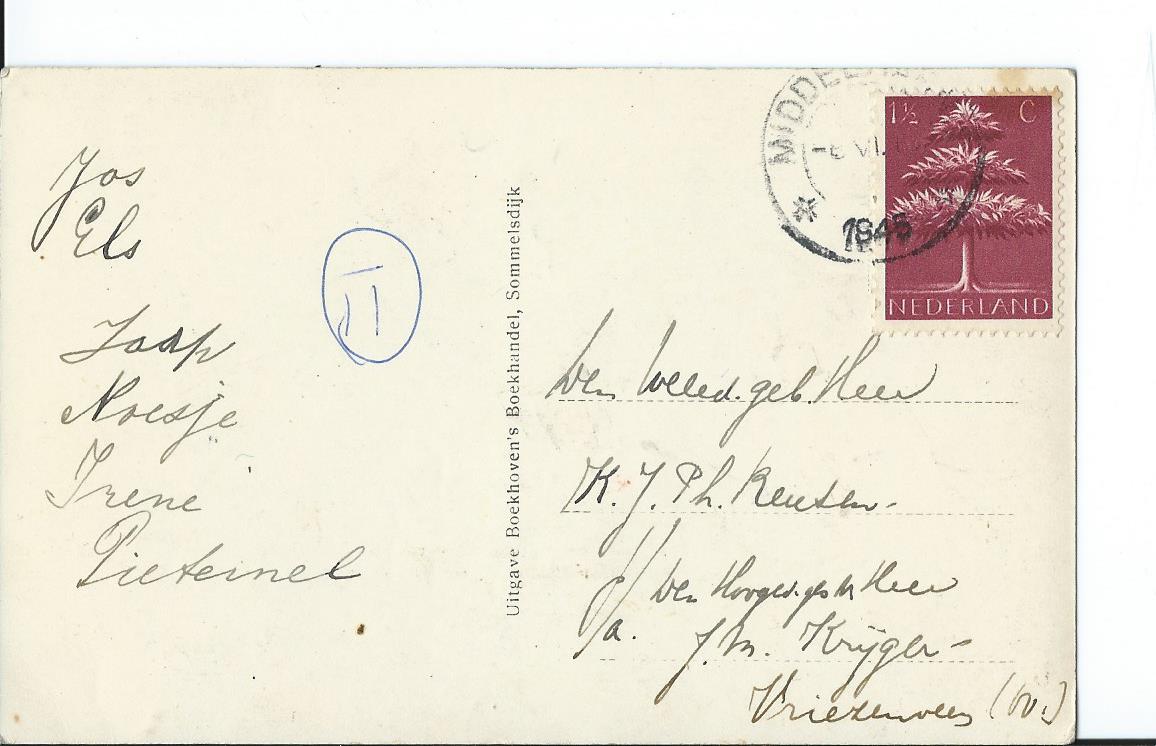 Jos
Els
Jaap
Noesje
Irene
Pieternel
II
Uitgave Boekhoven's Boekhandel, Sommelsdijk
1½ C
NEDERLAND
1945
Den Weled. geb. Heer
K. J. Ph. Reusen
p/a. Den Heer
J. M. Krijger
Vriezenveen (Ov.)